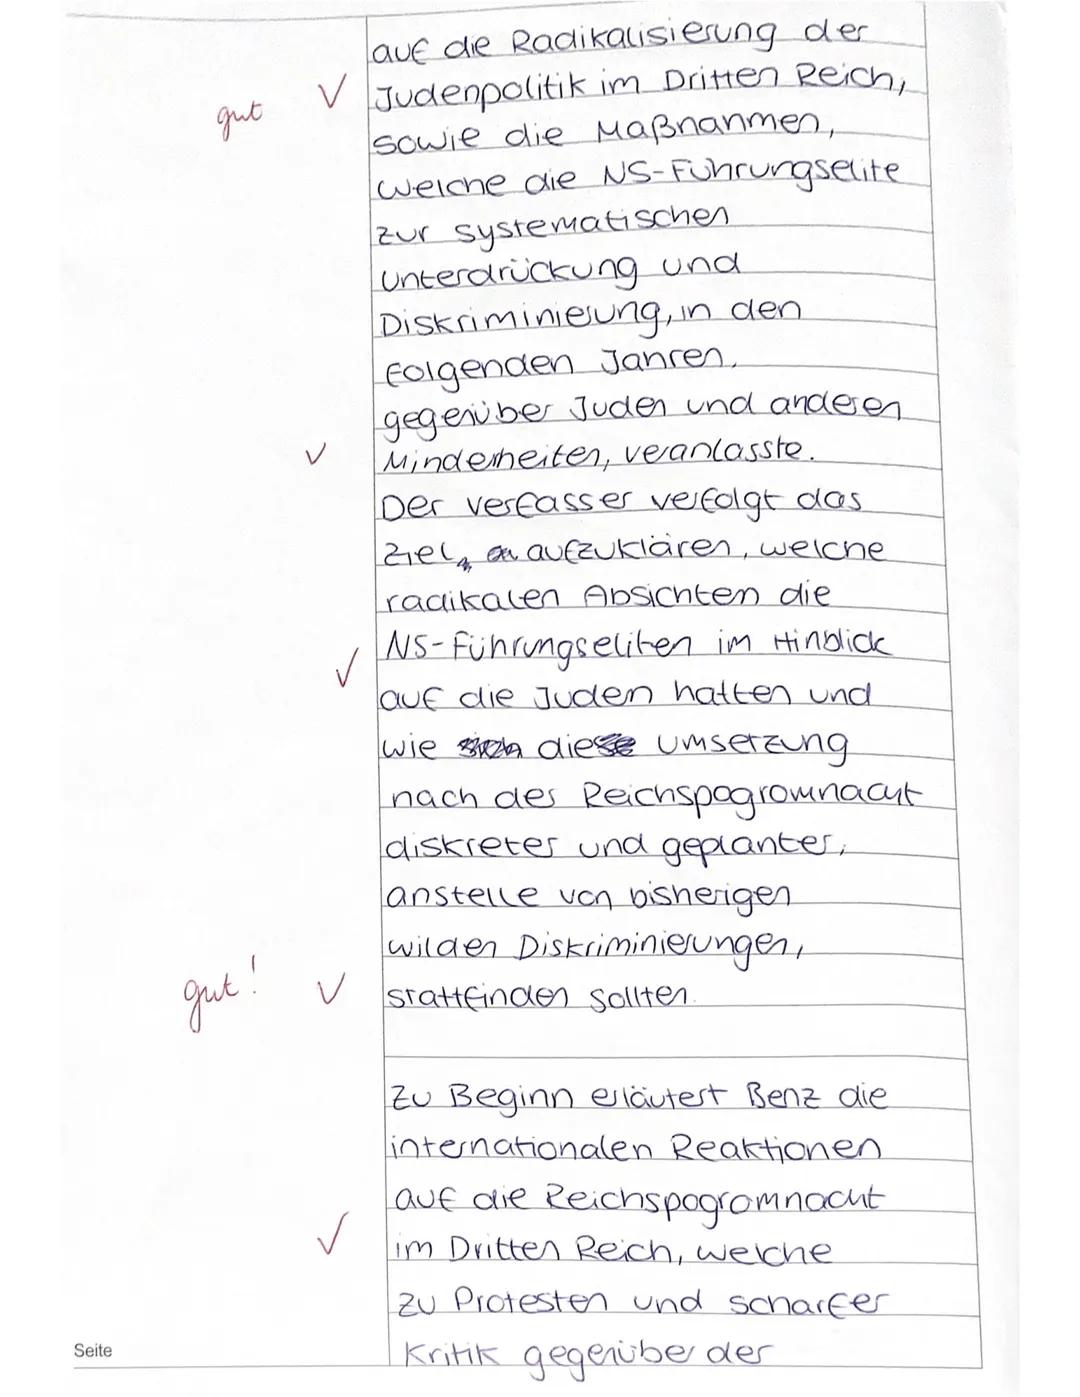 auf die Radikalisierung der
gut ✓ Judenpolitik im Dritten Reich,
sowie die Maßnahmen,
welche die NS-Führungselite
zur systematischen
Unterdrückung und
Diskriminierung, in den
folgenden Jahren,
gegenüber Juden und anderen
✓ Minderheiten, veranlasste.
Der Verfasser verfolgt das
Ziel, aufzuklären, welche
radikalen Absichten die
NS-Führungseliten im Hinblick
✓ auf die Juden hatten und
wie diese Umsetzung
nach der Reichspogromnacht
diskreter und geplanter,
anstelle von bisherigen
wilden Diskriminierungen,
gut! ✓ stattfinden sollten.
Zu Beginn erläutert Benz die
internationalen Reaktionen
auf die Reichspogromnacht
✓ im Dritten Reich, welche
zu Protesten und scharfer
Seite Kritik gegenüber der